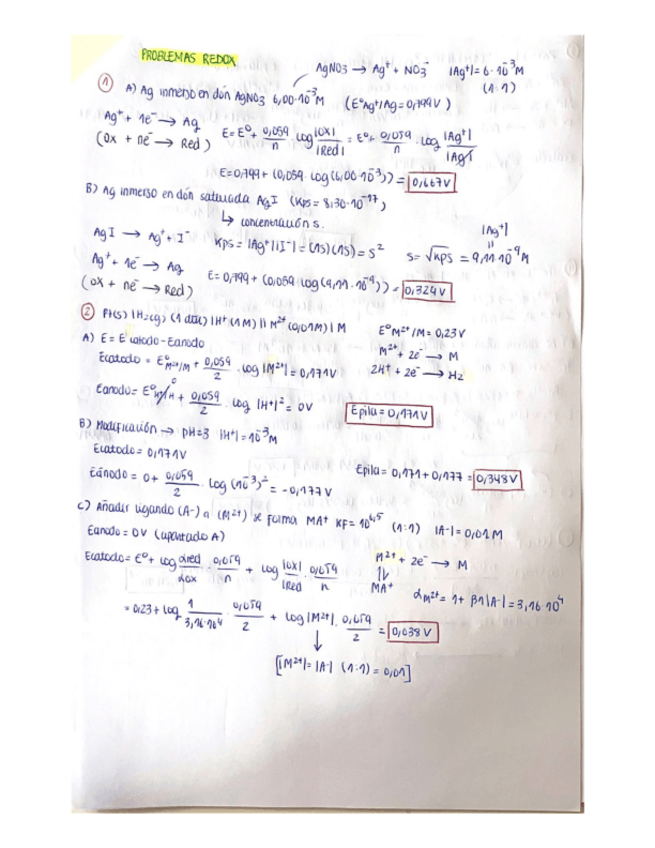 PROBLEMAS REDOX
AgNO3 → Ag⁺ + NO3⁻ |Ag⁺| = 6·10⁻³M
(1:1)
① A) Ag inmerso en dón AgNO3 6,00·10⁻³M (E°Ag⁺/Ag = 0,799V)
Ag⁺ + 1e⁻ → Ag
(Ox + ne⁻ → Red) E = E° + 0,059/n · log |Ox|/|Red| = E° + 0,059/n · log |Ag⁺|/|Ag|
E = 0,799 + (0,059 · log(6,00·10⁻³)) = 0,667V
B) Ag inmerso en dón saturada AgI (Kps = 8,30·10⁻¹⁷)
↳ concentración s.
AgI → Ag⁺ + I⁻ Kps = |Ag⁺||I⁻| = (1s)(1s) = s² s = √Kps = 9,11·10⁻⁹M
|Ag⁺|
Ag⁺ + 1e⁻ → Ag
(Ox + ne⁻ → Red) E = 0,799 + (0,059 · log(9,11·10⁻⁹)) = 0,324V
② Pt(s) | H2(g) (1 atm) | H⁺ (1M) || M²⁺ (0,01M) | M E°M²⁺/M = 0,23V
A) E = E cátodo - Eánodo M²⁺ + 2e⁻ → M
Ecátodo = E°M²⁺/M + 0,059/2 · log |M²⁺| = 0,171V 2H⁺ + 2e⁻ → H2
Eánodo = E°H⁺/H + 0,059/2 · log |H⁺|² = 0V Epila = 0,171V
B) Modificación → pH=3 |H⁺| = 10⁻³M
Ecátodo = 0,171V
Eánodo = 0 + 0,059/2 · log (10⁻³)² = -0,177V Epila = 0,171 + 0,177 = 0,348V
C) Añadir ligando (A⁻) a (M²⁺) se forma MA⁺ KF = 10⁴,⁵ (1:1) |A⁻| = 0,01M
Eánodo = 0V (apartado A)
Ecátodo = E° + log αred/αox · 0,059/n + log |Ox|/|Red · 0,059/n M²⁺ + 2e⁻ → M
MA⁺ αM²⁺ = 1 + β1|A⁻| = 3,16·10⁴
= 0,23 + log 1/3,16·10⁴ · 0,059/2 + log |M²⁺| · 0,059/2 = 0,038V
[|M²⁺| = |A⁻| (1:1) = 0,01]